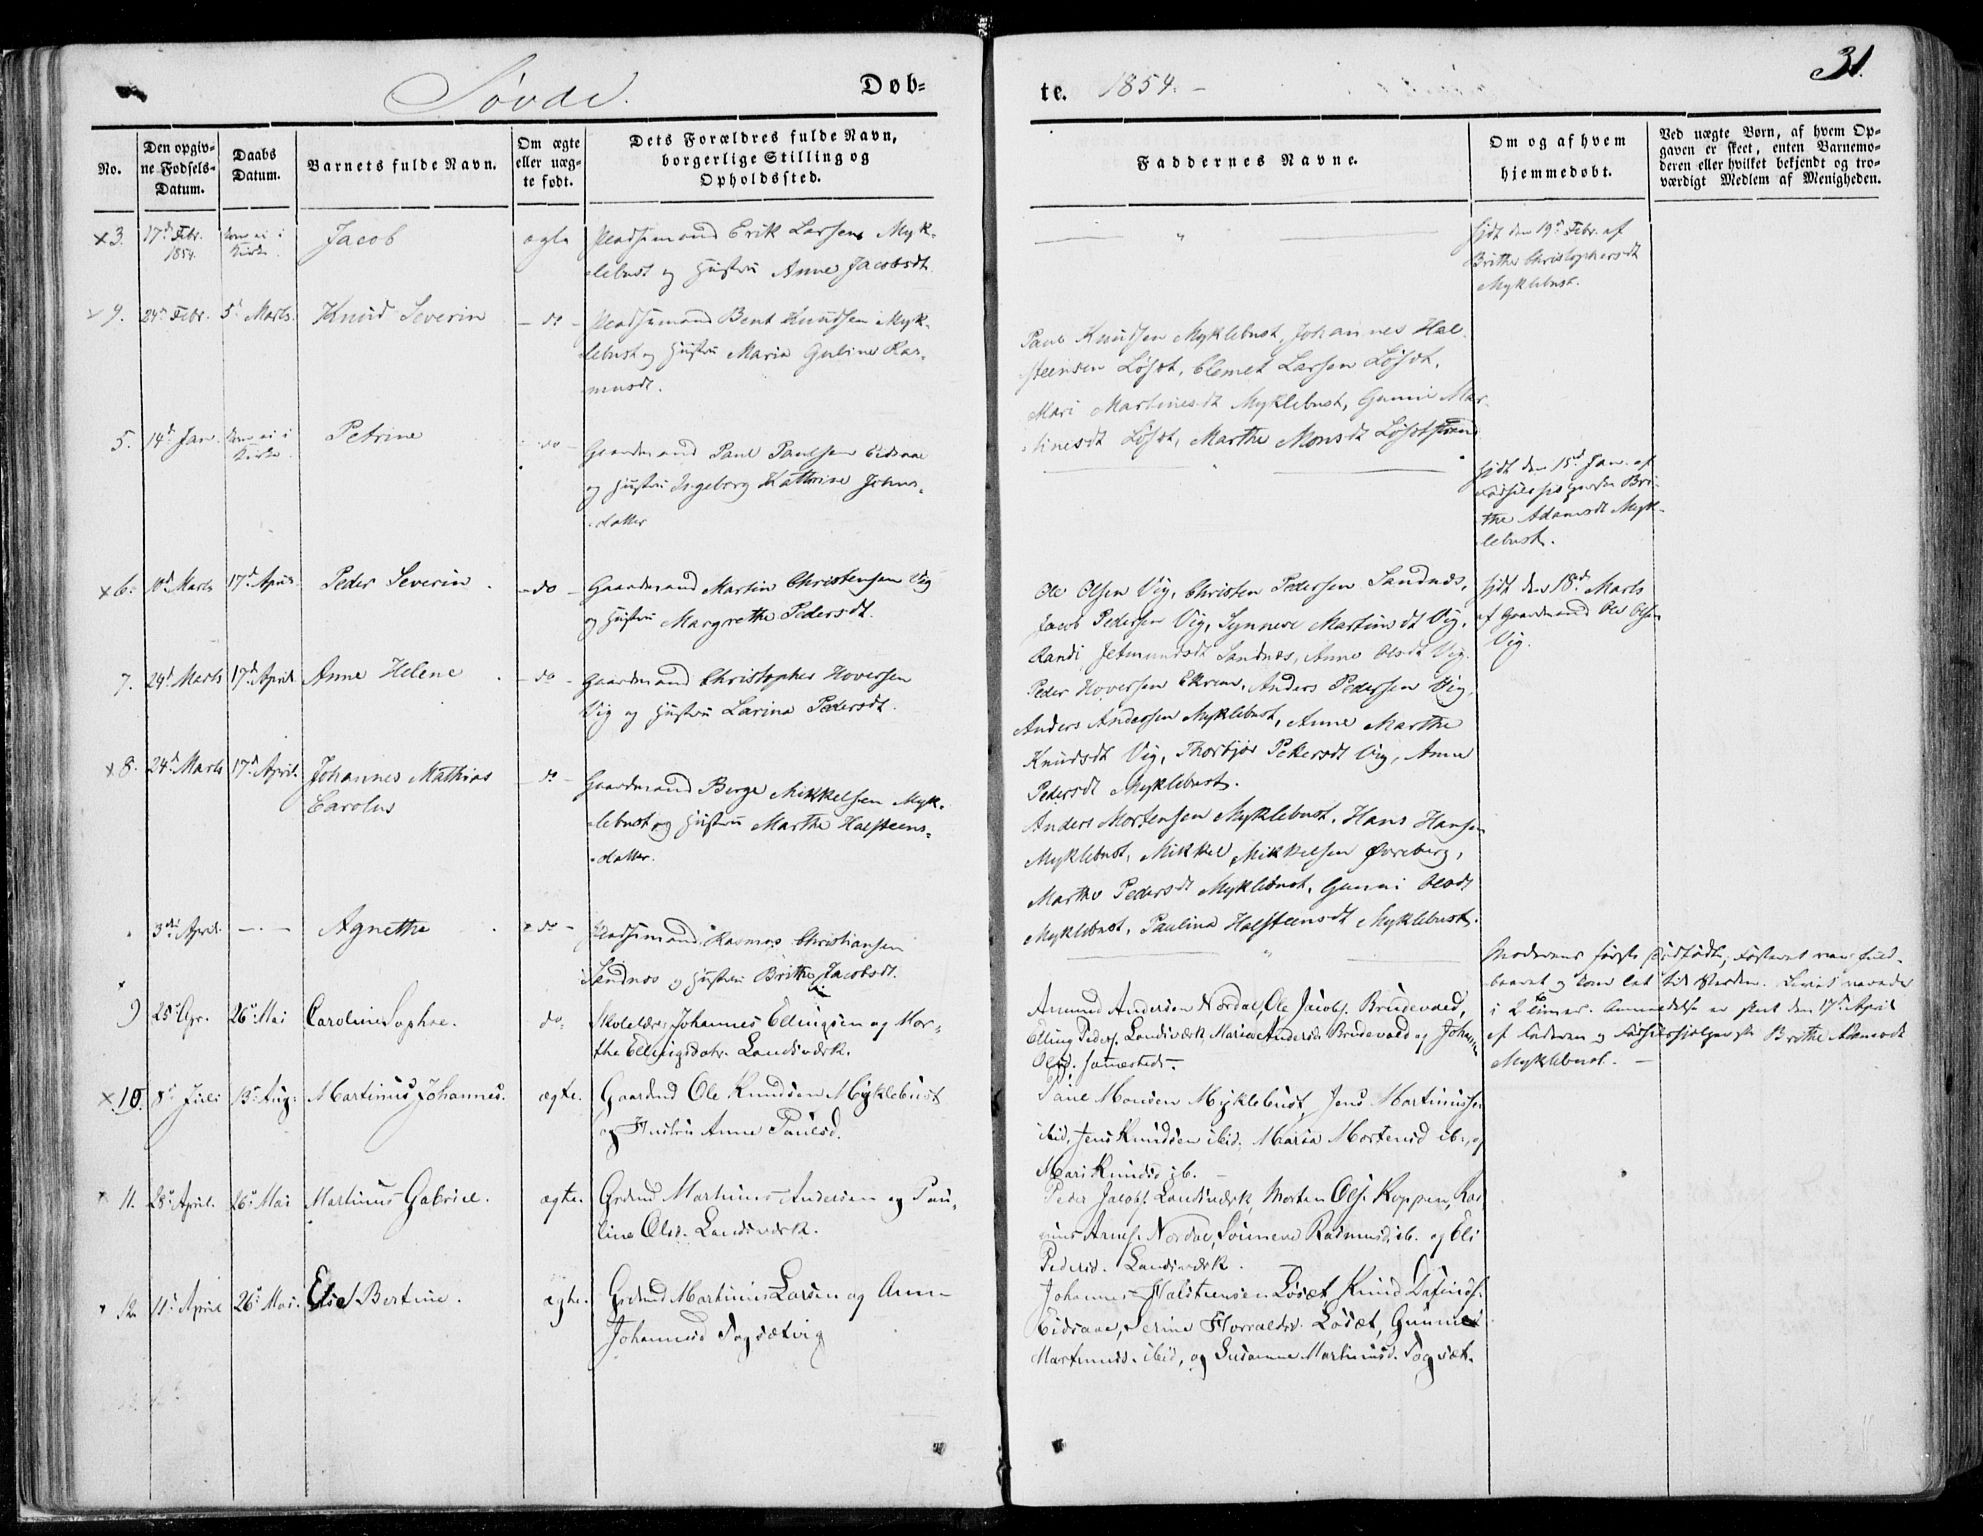 Søvde.
Døb-
te.
1854.
31.
No.
Den opgiv-
ne Fødsels-
Datum.
Daabs
Datum.
Barnets fulde Navn.
Om ægte
eller uæg-
te født.
Dets Forældres fulde Navn,
borgerlige Stilling og
Opholdssted.
Faddernes Navne.
Om og af hvem
hjemmedøbt.
Ved uægte Børn, af hvem Op-
gaven er skeet, enten Barnemo-
deren eller hvilket bekjendt og tro-
værdigt Medlem af Menigheden.
×3.
17d Febr.
1854.
kom ei i
Kirke.
Jacob
ægte
Pladsmand Erik Larsen Myk-
lebust og Hustru Anne Jacobsdt.
hjdt den 19d Febr. af
Brithe Christophersdt
Myklebust.
24d Febr. 5d Marts.
Knud Severin
do
Pladsmand Bent Knudsen Myk-
lebust og Hustru Maria Guline Ras-
musdt.
Paul Knudsen Myklebust, Johannes Hal-
steensen Løset, Clemet Larsen Løset,
Mari Martinesdt Myklebust, Gunni Mar-
tinesdt Løset, Marthe Monsdt
5.
14d Jan.
kom ei i
Kirke.
Petrine
do
Gaardmand Paul Paulsen Eidsaae
og Hustru Ingeborg Kathrine Johns-
datter
hjdt den 15d Jan. af
Bri-
the Adamsdt Myk-
lebust.
×6.
10d Marts 17d April.
Peder Severin
do
Gaardmand Martin Christensen Vig
og Hustru Margrethe Pedersdt.
Ole Olsen Vig, Christen Pedersen Sandnæs,
Jacob Pedersen Vig, Synneve Martinsdt Vig,
Randi Jetmundsdt Sandnæs, Anne Olsdt Vig.
hjdt den 18d Marts
af Gaardmand Ole Olsen
Vig.
7.
29d Marts 17d April
Anne Helene
do
Gaardmand Christopher Hoversen
Vig og Hustru Larina Pedersdt.
Peder Hoversen Ekrem, Anders Pedersen Vig,
Anders Andersen Myklebust, Anne Marthe
Knudsdt Vig, Thorbjør Pettersdt Vig, Anne
Pedersdt Myklebust.
×8.
24d Marts 17d April.
Johannes Mathias
Carolus
do
Gaardmand Børge Mikkelsen Myk-
lebust og Hustru Marthe Halsteens-
datter.
Anders Mortensen Myklebust, Hans Hansen
Myklebust, Mikkel Mikkelsen Øvreberg,
Marthe Pedersdt Myklebust, Gunni Olsdt
Myklebust, Paulina Halsteensdt Myklebust.
3die April.
Agnethe
do
Pladsmand Rasmus Christiansen
Sandnæs og Hustru Brithe Jacobsdt.
Moderens første
baaret og kom let til Verden. Livet varede
i 2 Timer. Anmeldelse er skeet den 17d April
af Faderen og Brithe Adamsdt
Myklebust.
9
25d Apr.
26d Mai
Caroline Sophie.
do.
Skolelærer Johannes Ellingsen og Mar-
the Ellingsdatr. Landsværk.
Amund Andersen Nordal, Ole Jacobs. Brudevold,
Elling Peders. Landsværk, Maria Andersd. Brudevold og Johanne
Olsd. sammesteds.
×10.
8d Juli
13d Aug.
Martinus Johannes.
ægte.
Gaardmd Ole Knudsen Myklebust
og Hustru Anne Paulsd.
Paul Monsen Myklebust, Jens Martinussen
ibid, Jens Knudsen ibid. Maria Mortensd ib., og
Mari Knudsd ib.
11.
28d April.
26d Mai
Martinus Gabriel.
ægte.
Grdmd Martinus Andersen og Pau-
line Olsd. Landsværk.
Peder Jacobs. Landsværk, Morten Ols. Koppen, Ras-
mus Arnes. Nordal, Synneve Rasmusd. ib. og Eli
Pedersd. Landsværk.
12
11d April
26d Mai.
Elsel Bertine.
ægte.
Grdmd Martinus Larsen og Anne
Johannesd Sogsætvig
Johannes Halsteensen Løsæt, Knud Dafinds.
Eidsaae, Serine Løsæt, Gunnild
Martinusd. ibid, og Susanne Martinusd. Sogsæt.